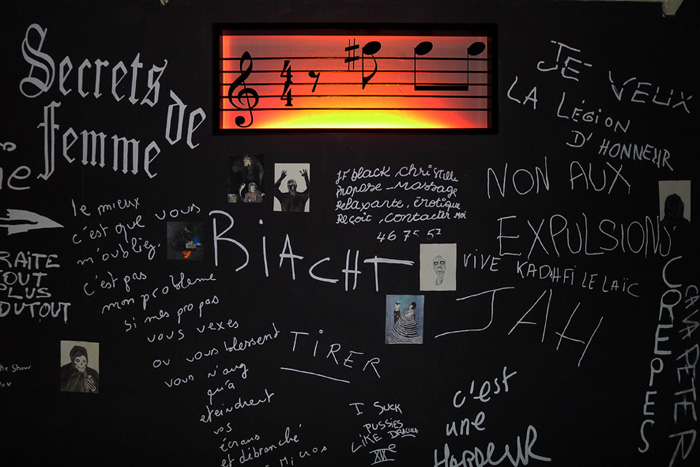 Secrets
de
femme
4
4
JE VEUX
LA LÉGION
D'HONNEUR
JF black christelle
propose - massage
Relaxante, érotique
Reçoit, contacter moi
46 75 52
NON AUX
EXPULSIONS
VIVE KADHAFI LE LAÏC
le mieux
c'est que vous
m'oubliez.
c'est pas
mon problème
si mes propos
vous vexes
ou vous blessent
vous n'avez
qu'à
eteindrent
vos
écrans
et débranché
MICROS
BIACHT
JAH
TIRER
TOUT
PLUS
DU TOUT
the Show
I SUCK
PUSSIES
LIKE DRACULA
c'est
une
HARDEUR
CREPES